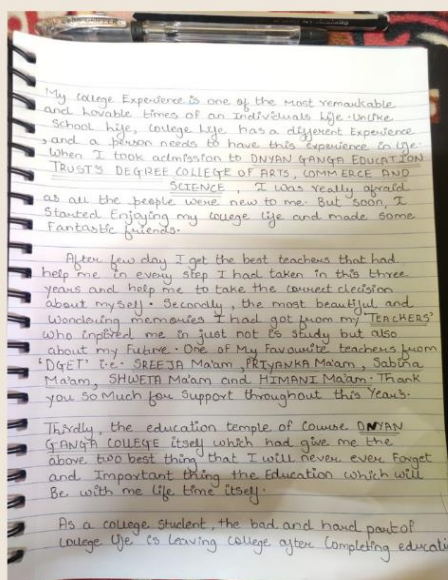 My College Experience is one of the Most remarkable
and lovable times of an Individuals life. Unlike
School life, College life has a different Experience
, and a person needs to have this experience in life.
When I took admission to DNYAN GANGA EDUCATION
TRUST'S DEGREE COLLEGE OF ARTS, COMMERCE AND
SCIENCE, I was really afraid
as all the people were new to me. But soon, I
Started Enjoying my college life and made some
Fantastic friends.
After few day I get the best teachers that had
help me in every step I had taken in this three
years and help me to take the correct decision
about myself. Secondly, the most beautiful and
memories I had got from my 'TEACHERS'
who inpired me in just not is study but also
about my Future. One of My Favourite teachers from
'DGET' i.e. SREEJA Ma'am, PRIYANKA Ma'am, Sabina
Ma'am, SHWETA Ma'am and HIMANI Ma'am. Thank
you So Much for Support throughout this Years.
Thirdly, the education temple of Course DNYAN
GANGA COLLEGE itself which had give me the
above two best thing that I will never ever Forget
and Important thing the Education which will
Be with me life time itself.
As a college Student, the bad and hard part of
College life is leaving college after Completing educati